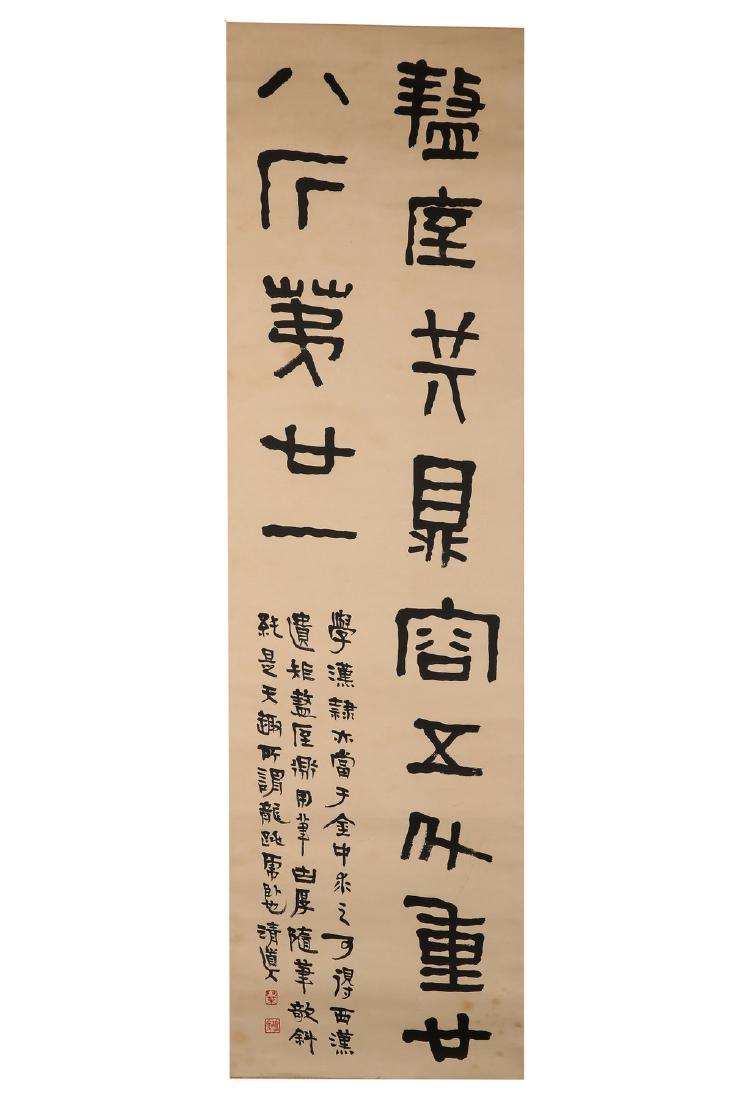 盩厔共鼎容五升重廿
八斤第廿一
學漢隸亦當于金中求之可得西漢
遺矩盩厔鼎用筆古厚隨筆欹斜
純是天趣所謂龍跳虎臥也清道人